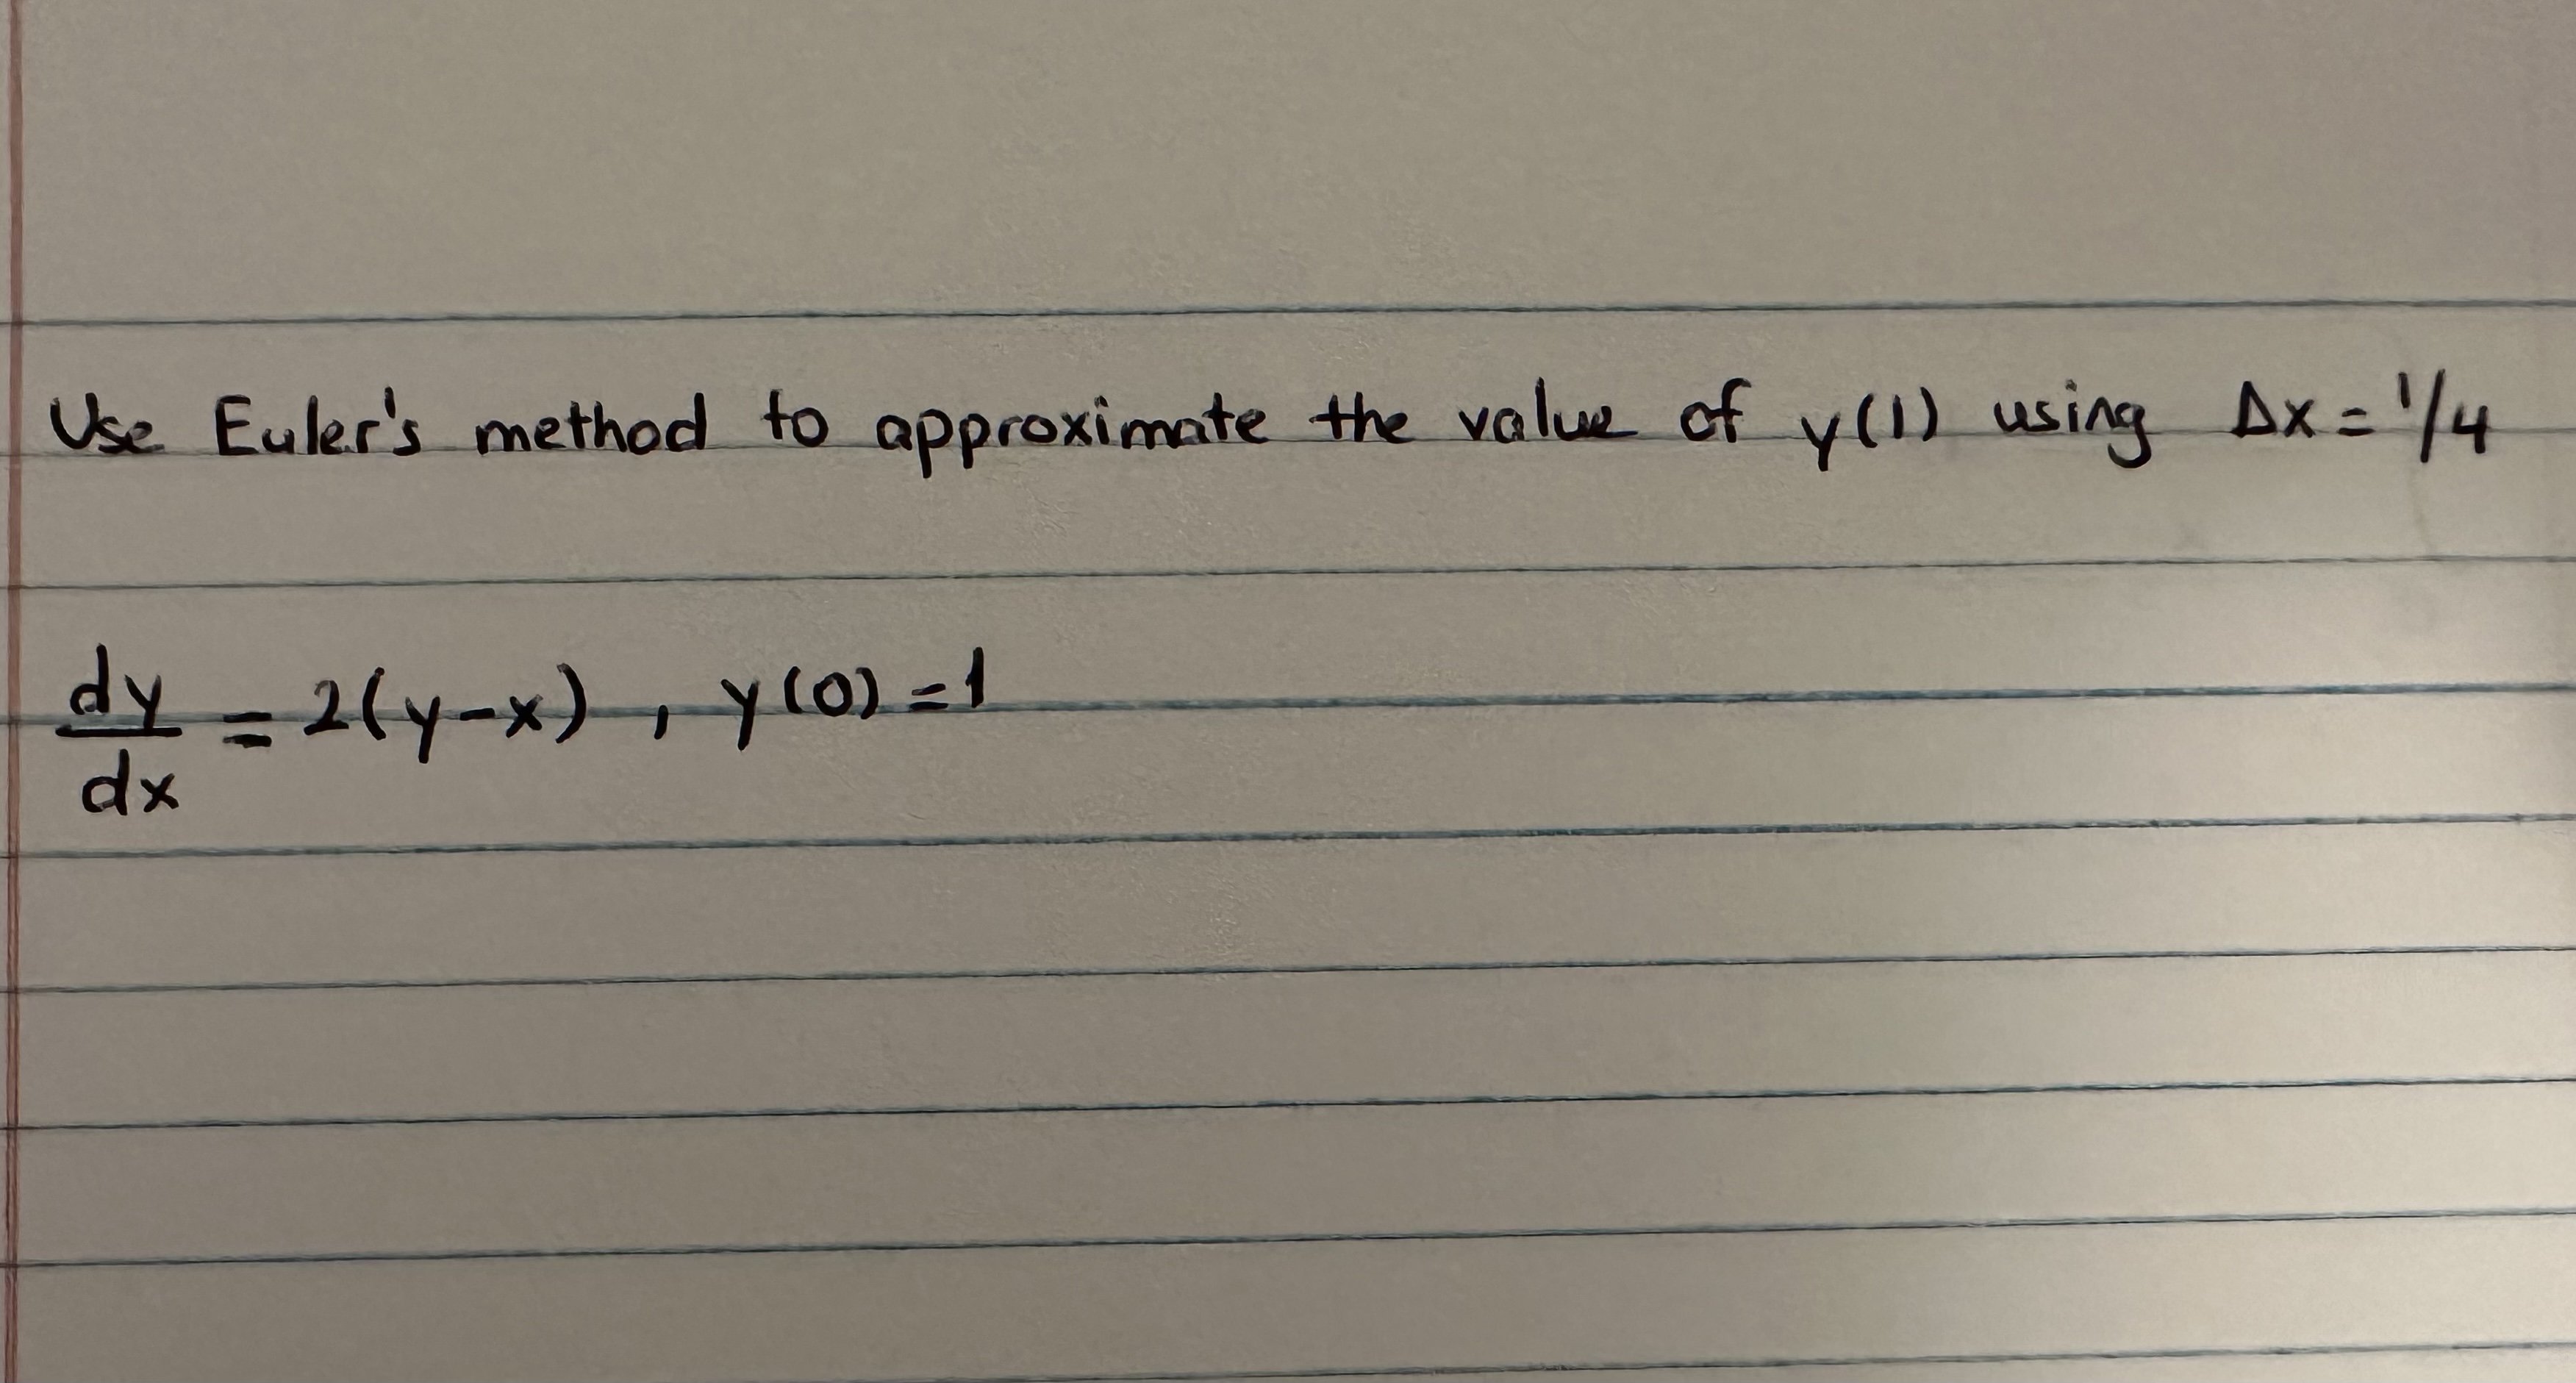 Use Euler's method to approximate the value of y(1) using Δx = 1/4
dy/dx = 2(y-x) , y(0) = 1